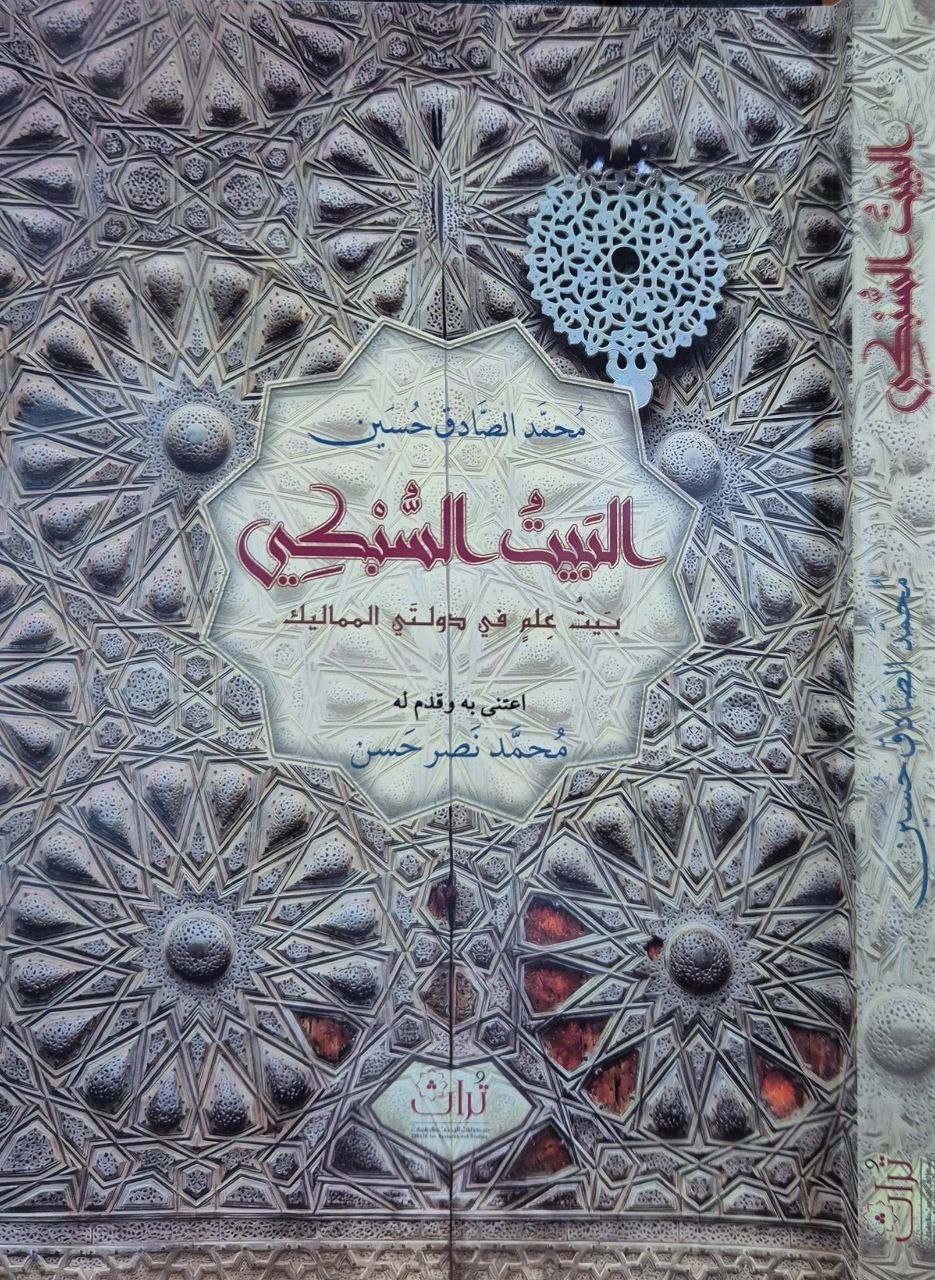 مُحمَّد الصَّادق حُسَين
البَيتُ السُّبْكِي
بَيتُ عِلمٍ في دولتَي المماليك
اعتنى به وقدم له
مُحمَّد نَصر حَسن
تُراث
البَيتُ السُّبْكِي
محمَّد الصَّادق حسين
تُراث